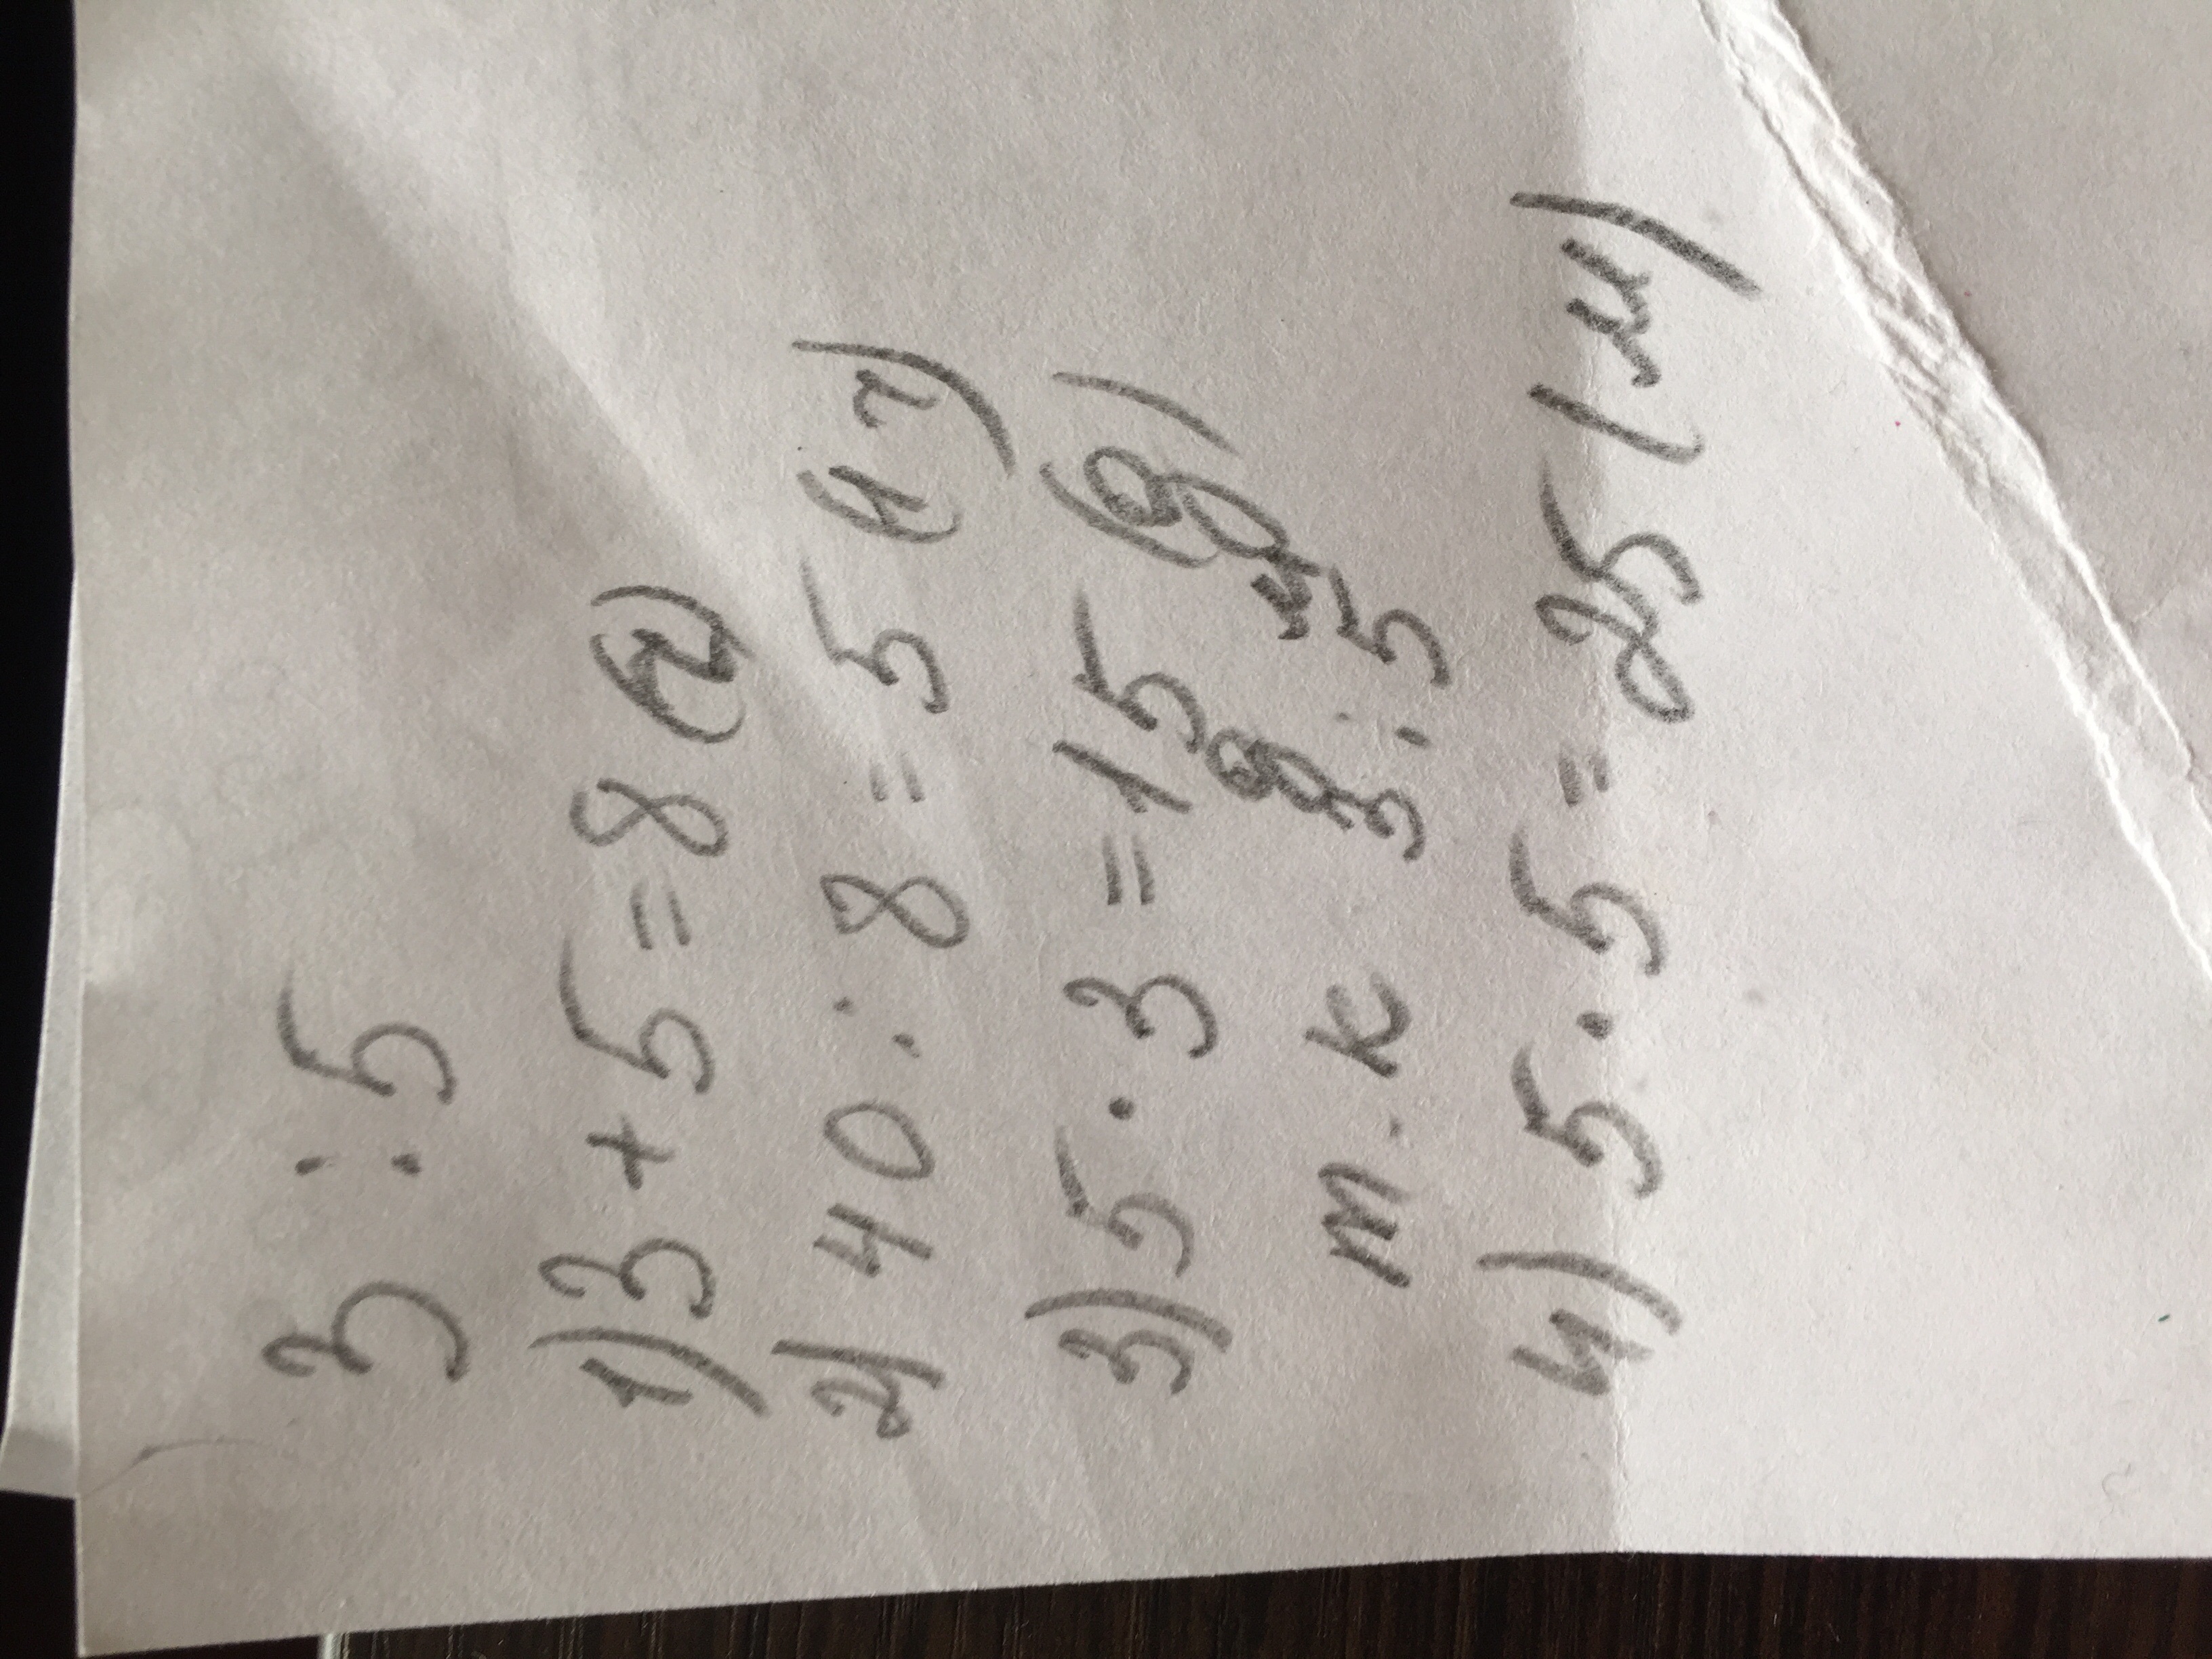 3 : 5
1) 3 + 5 = 8 (ч)
2) 40 : 8 = 5 (1 ч)
3) 5 · 3 = 15 (д)
т. к д м
3 : 5
4) 5 · 5 = 25 (м)